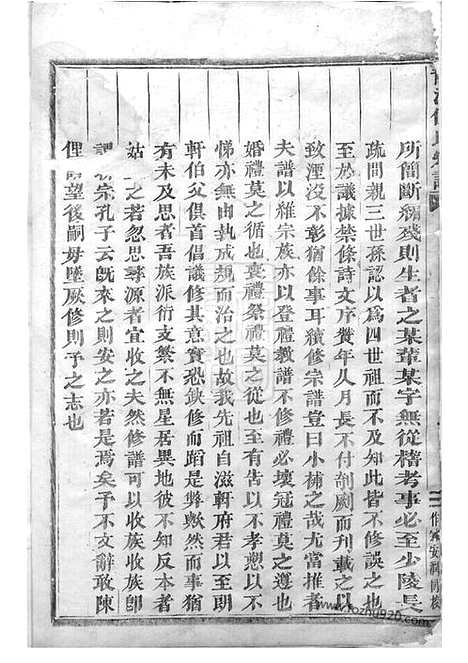 所簡斷編殘則生者之某輩某字無從稽考事必至少陵長
疏間親三世孫認以為四世祖而不及知此皆不修誤之也
至於議據禁條詩文序贊年久月長不付剞劂而刊載
致湮沒不彰猶餘事耳續修宗譜豈曰小補之哉尤當推者
夫譜以維宗族亦以登禮教譜不修禮必壞冠禮莫之遵也
婚禮莫之循也喪禮祭禮莫之從也至有告以不孝恕以不
悌亦無由執成規而治之也故我先祖自滋軒府君以至朗
軒伯父俱首倡議修其意實恐缺修而蹈是弊歟然而事猶
有未及思者吾族派衍支繁不無星居異地彼即不知反本者
姑 之若忽思尋源者宜收之夫然修譜可以收族收族即
宗孔子云既來之則安之亦若是焉矣予不文辭敢陳
俚 望後嗣毋墜厥修則予之志也
氏宗譜